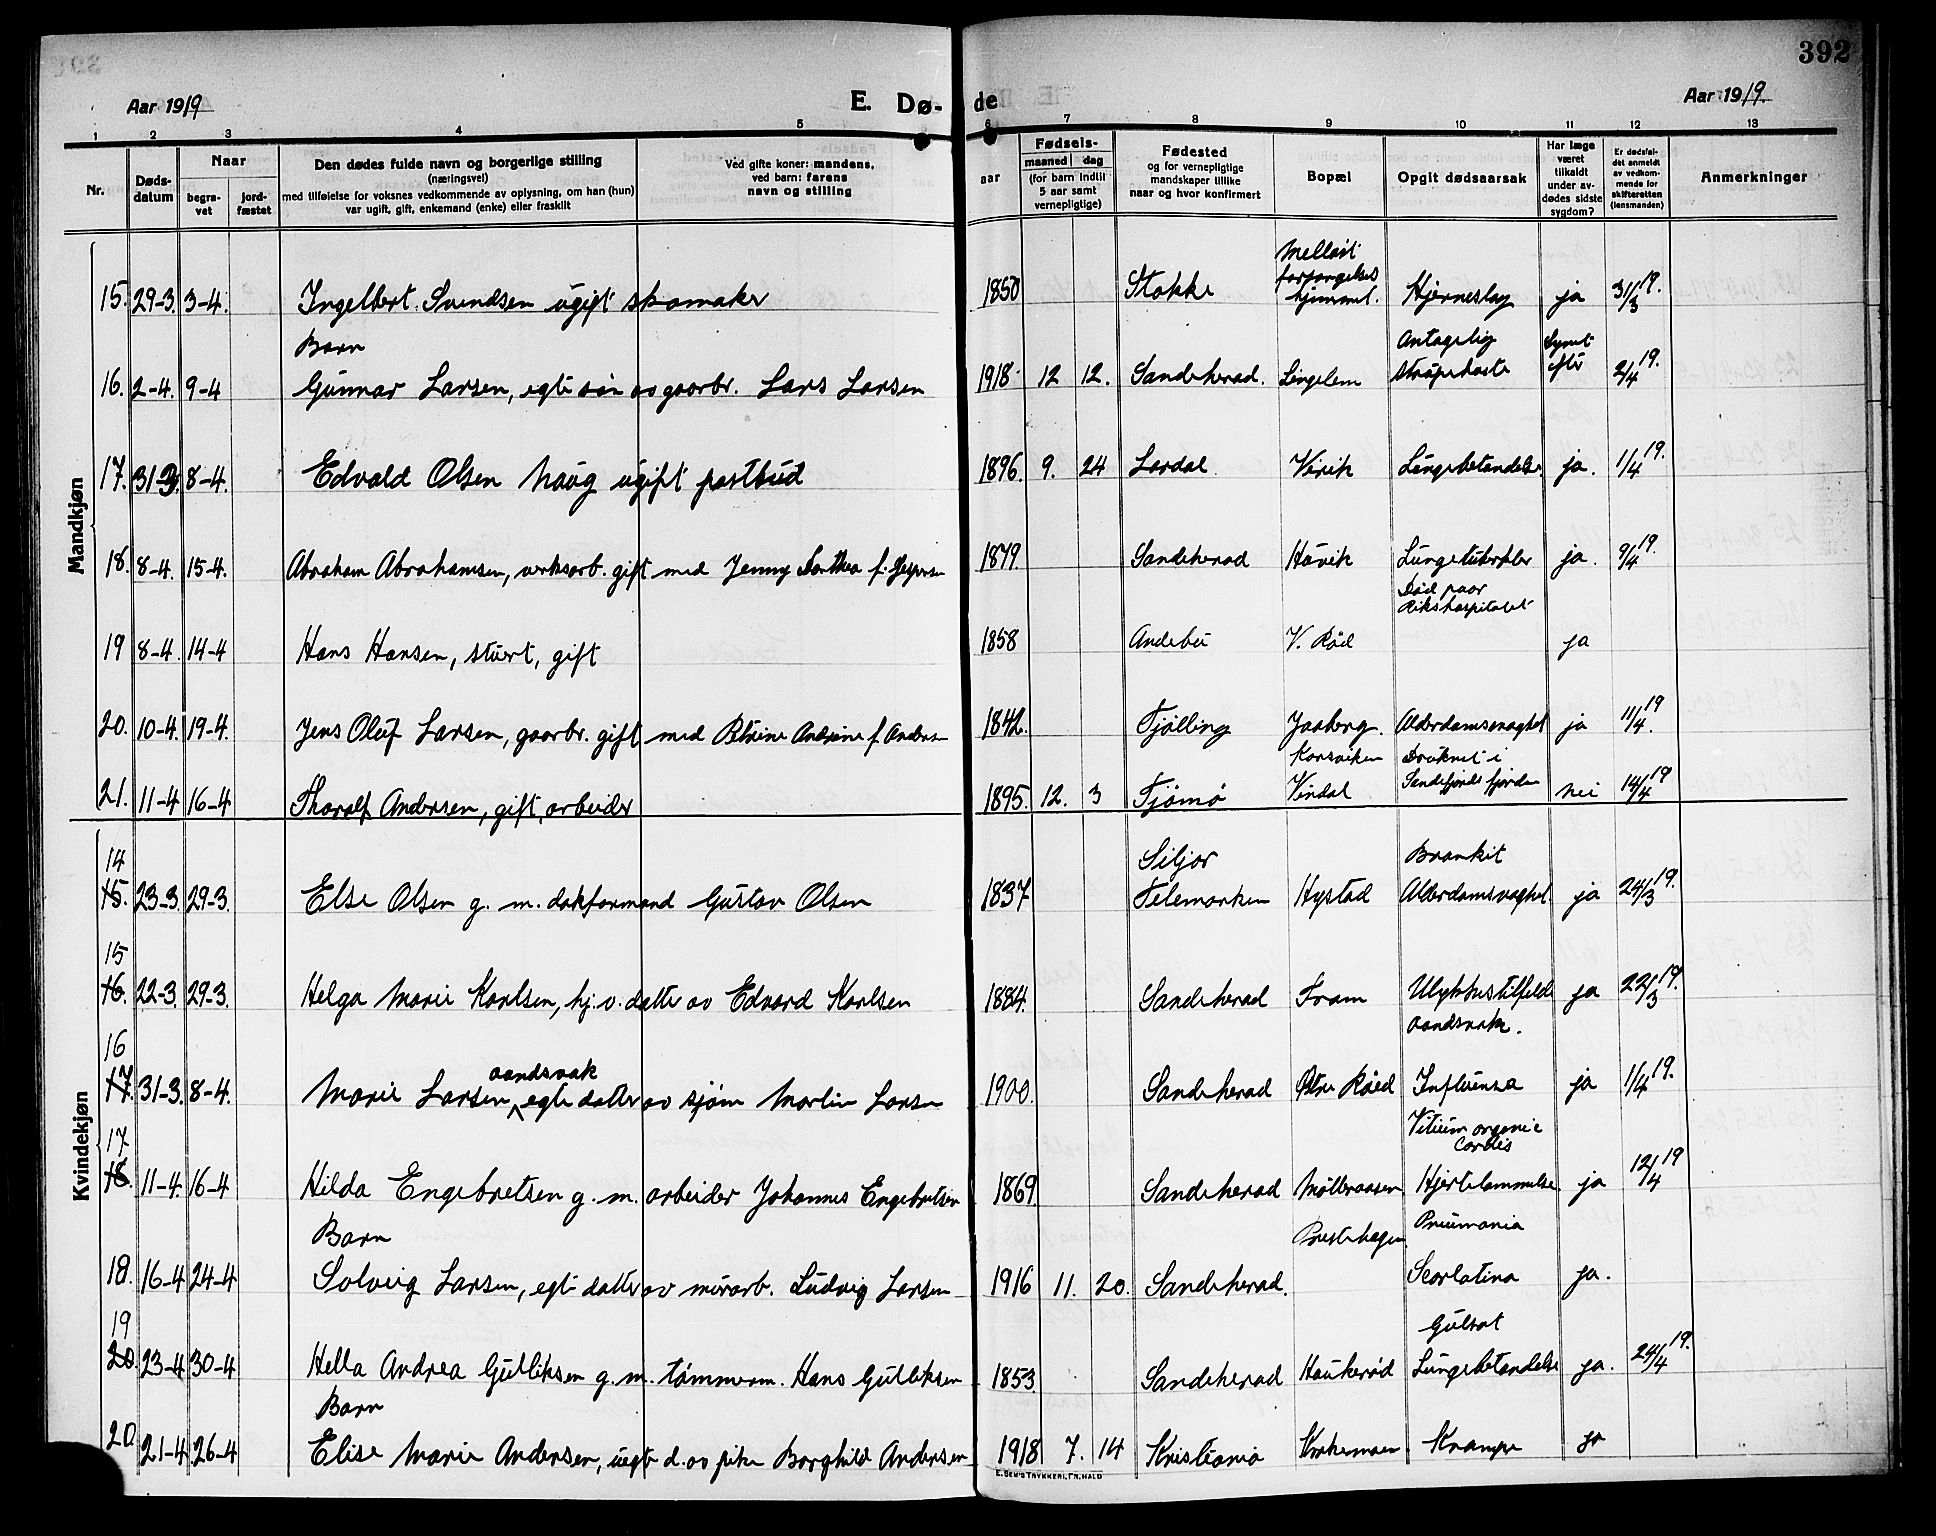 392
Aar 1919
E. Dø-
de
Aar 1919.
1 2 3 4 5 6 7 8 9 10 11 12 13
Nr.
Døds-
datum
Naar
begra-
vet
jord-
fæstet
Den dødes fulde navn og borgerlige stilling
(næringsvei)
med tilføielse for voksnes vedkommende av oplysning, om han (hun)
var ugift, gift, enkemand (enke) eller fraskilt
Ved gifte koner: mandens,
ved barn: farens
navn og stilling
aar
Fødsels-
maaned dag
(for barn indtil
5 aar samt
vernepligtige)
Fødested
og for vernepligtige
mandskaper tillike
naar og hvor konfirmert
Bopæl
Opgit dødsaarsak
Har læge
været
tilkaldt
under av-
dødes sidste
sygdom?
Er dødsfal-
det anmeldt
av vedkom-
mende for
skifteretten
(lensmanden)
Anmerkninger
Mandkjøn
15. 29-3. 3-4. Ingelbert Svendsen ugift skomaker 1850 Stokke Melløst forsørgelses hjemmet. Hjerneslag ja 31/3 19.
Barn
16. 2-4. 9-4 Gunnar Larsen, egte søn av gaarbr. Lars Larsen 1918 12 12. Sandeherad. Lingelem Antagelig strupehoste Synet efter 2/4 19.
17. 31-3. 8-4. Edvald Olsen Haug ugift postbud 1896. 9. 24 Lardal. Virik Lungebetændelse ja. 1/4 19.
18. 8-4. 15-4. Abraham Abrahamsen, verksarb. gift med Jenny Dorthea f. Jespersen 1879. Sandeherad Haavik Lungetuberkler ja. 9/4 19.
Død paa
Rikshospitalet
19 8-4. 14-4 Hans Hansen, stuert, gift 1858 Andebu V. Rød ja
20. 10-4. 19-4. Jens Oluf Larsen, gaarbr. gift med Petrine Andrine f. Anders 1842. Fjølling Jaaberg. Alderdomssvaghet ja 11/4 19
21. 11-4 16-4 Tharalf Andersen, gift, arbeider 1895. 12. 3 Tjømø Korsviken Vindal Druknet i Sandefjords fjorden nei 14/4 19
Kvindekjøn
14
15. 23-3. 29-3. Else Olsen g. m. dokformand Gustav Olsen 1837 Siljor Telemarken Hystad Bronkit Alderdomsvaghet ja 24/3 19.
15
16. 22-3. 29-3. Helga Marie Karlsen, hj. v. datter av Edvard Karlsen 1884. Sandeherad Fram Ulykkestilfelde ja 22/3 19.
aandsvak.
16
17. 31-3. 8-4. Marie Larsen, aandsvak egte datter av sjøm Martin Larsen 1900. Sandeherad Østre Røed Influensa ja 1/4 19.
17
18. 11-4. 16-4 Hilda Engebretsen g. m. arbeider Johannes Engebretsen 1869. Sandeherad Møllraasen Vitium organic Cordis Hjertelammelse. ja 12/4 19
Barn
18. 16-4 24-4 Solveig Larsen, egte datter av murarb. Ludvig Larsen 1916 11. 20. Sandeherad. Prestehagen. Pneumonia Scarlatina ja.
19
20. 23-4 30-4 Hella Andrea Gulliksen g. m. tømmerm. Hans Gulliksen 1853. Sandeherad Haukerød Gulsot Lungebetændelse ja. 24/4 19.
Barn
20 21-4 26-4 Elise Marie Andersen, uegte d. av pike Borghild Andersen 1918 7. 14 Kristiania Krokemoen. Krampe ja
E. SEM'S TRYKKERI, FR.HALD